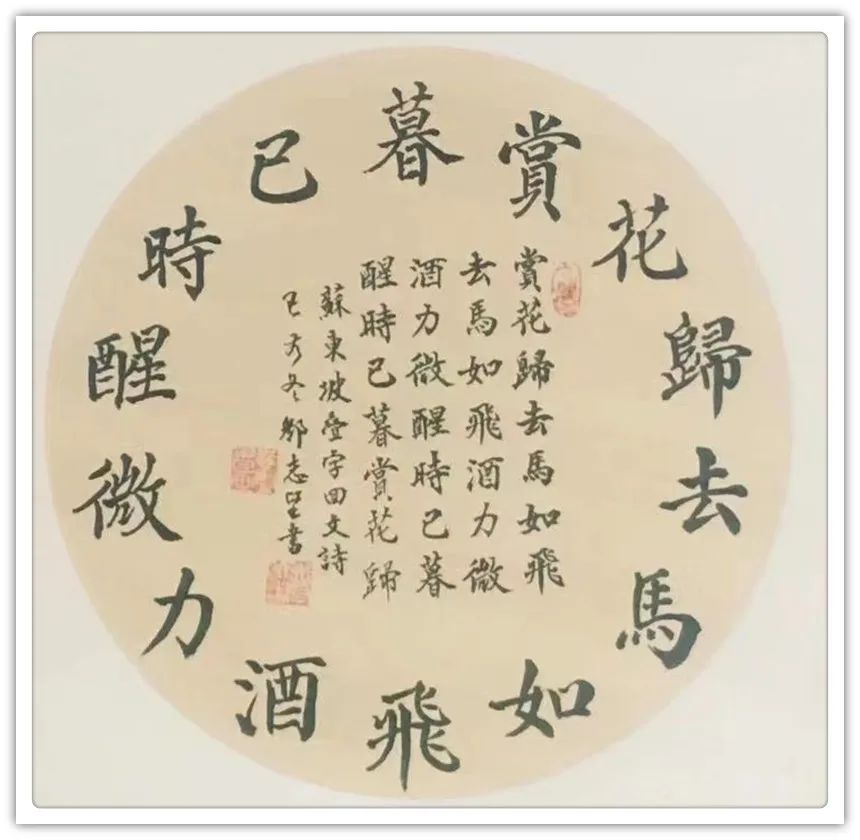 賞花歸去馬如飛酒力微醒時已暮
賞花歸去馬如飛
去馬如飛酒力微
酒力微醒時已暮
醒時已暮賞花歸
蘇東坡叠字回文詩
己亥冬鄒志書